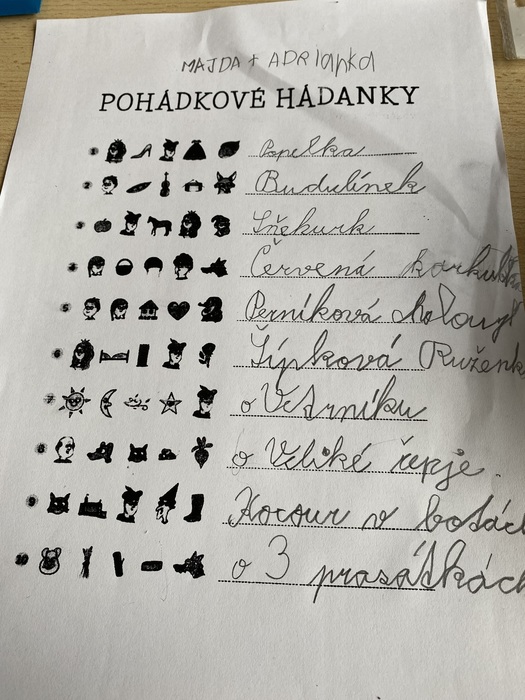 MAJDA + ADRIANKA
POHÁDKOVÉ HÁDANKY
1 Popelka
2 Budulínek
3
4 Červená karkulka
5 Perníková chaloup
6 Šípková Růženk
7 o Větrníku
8 o Veliké řepje.
9 Kocour v botác
10 o 3 prasátkách